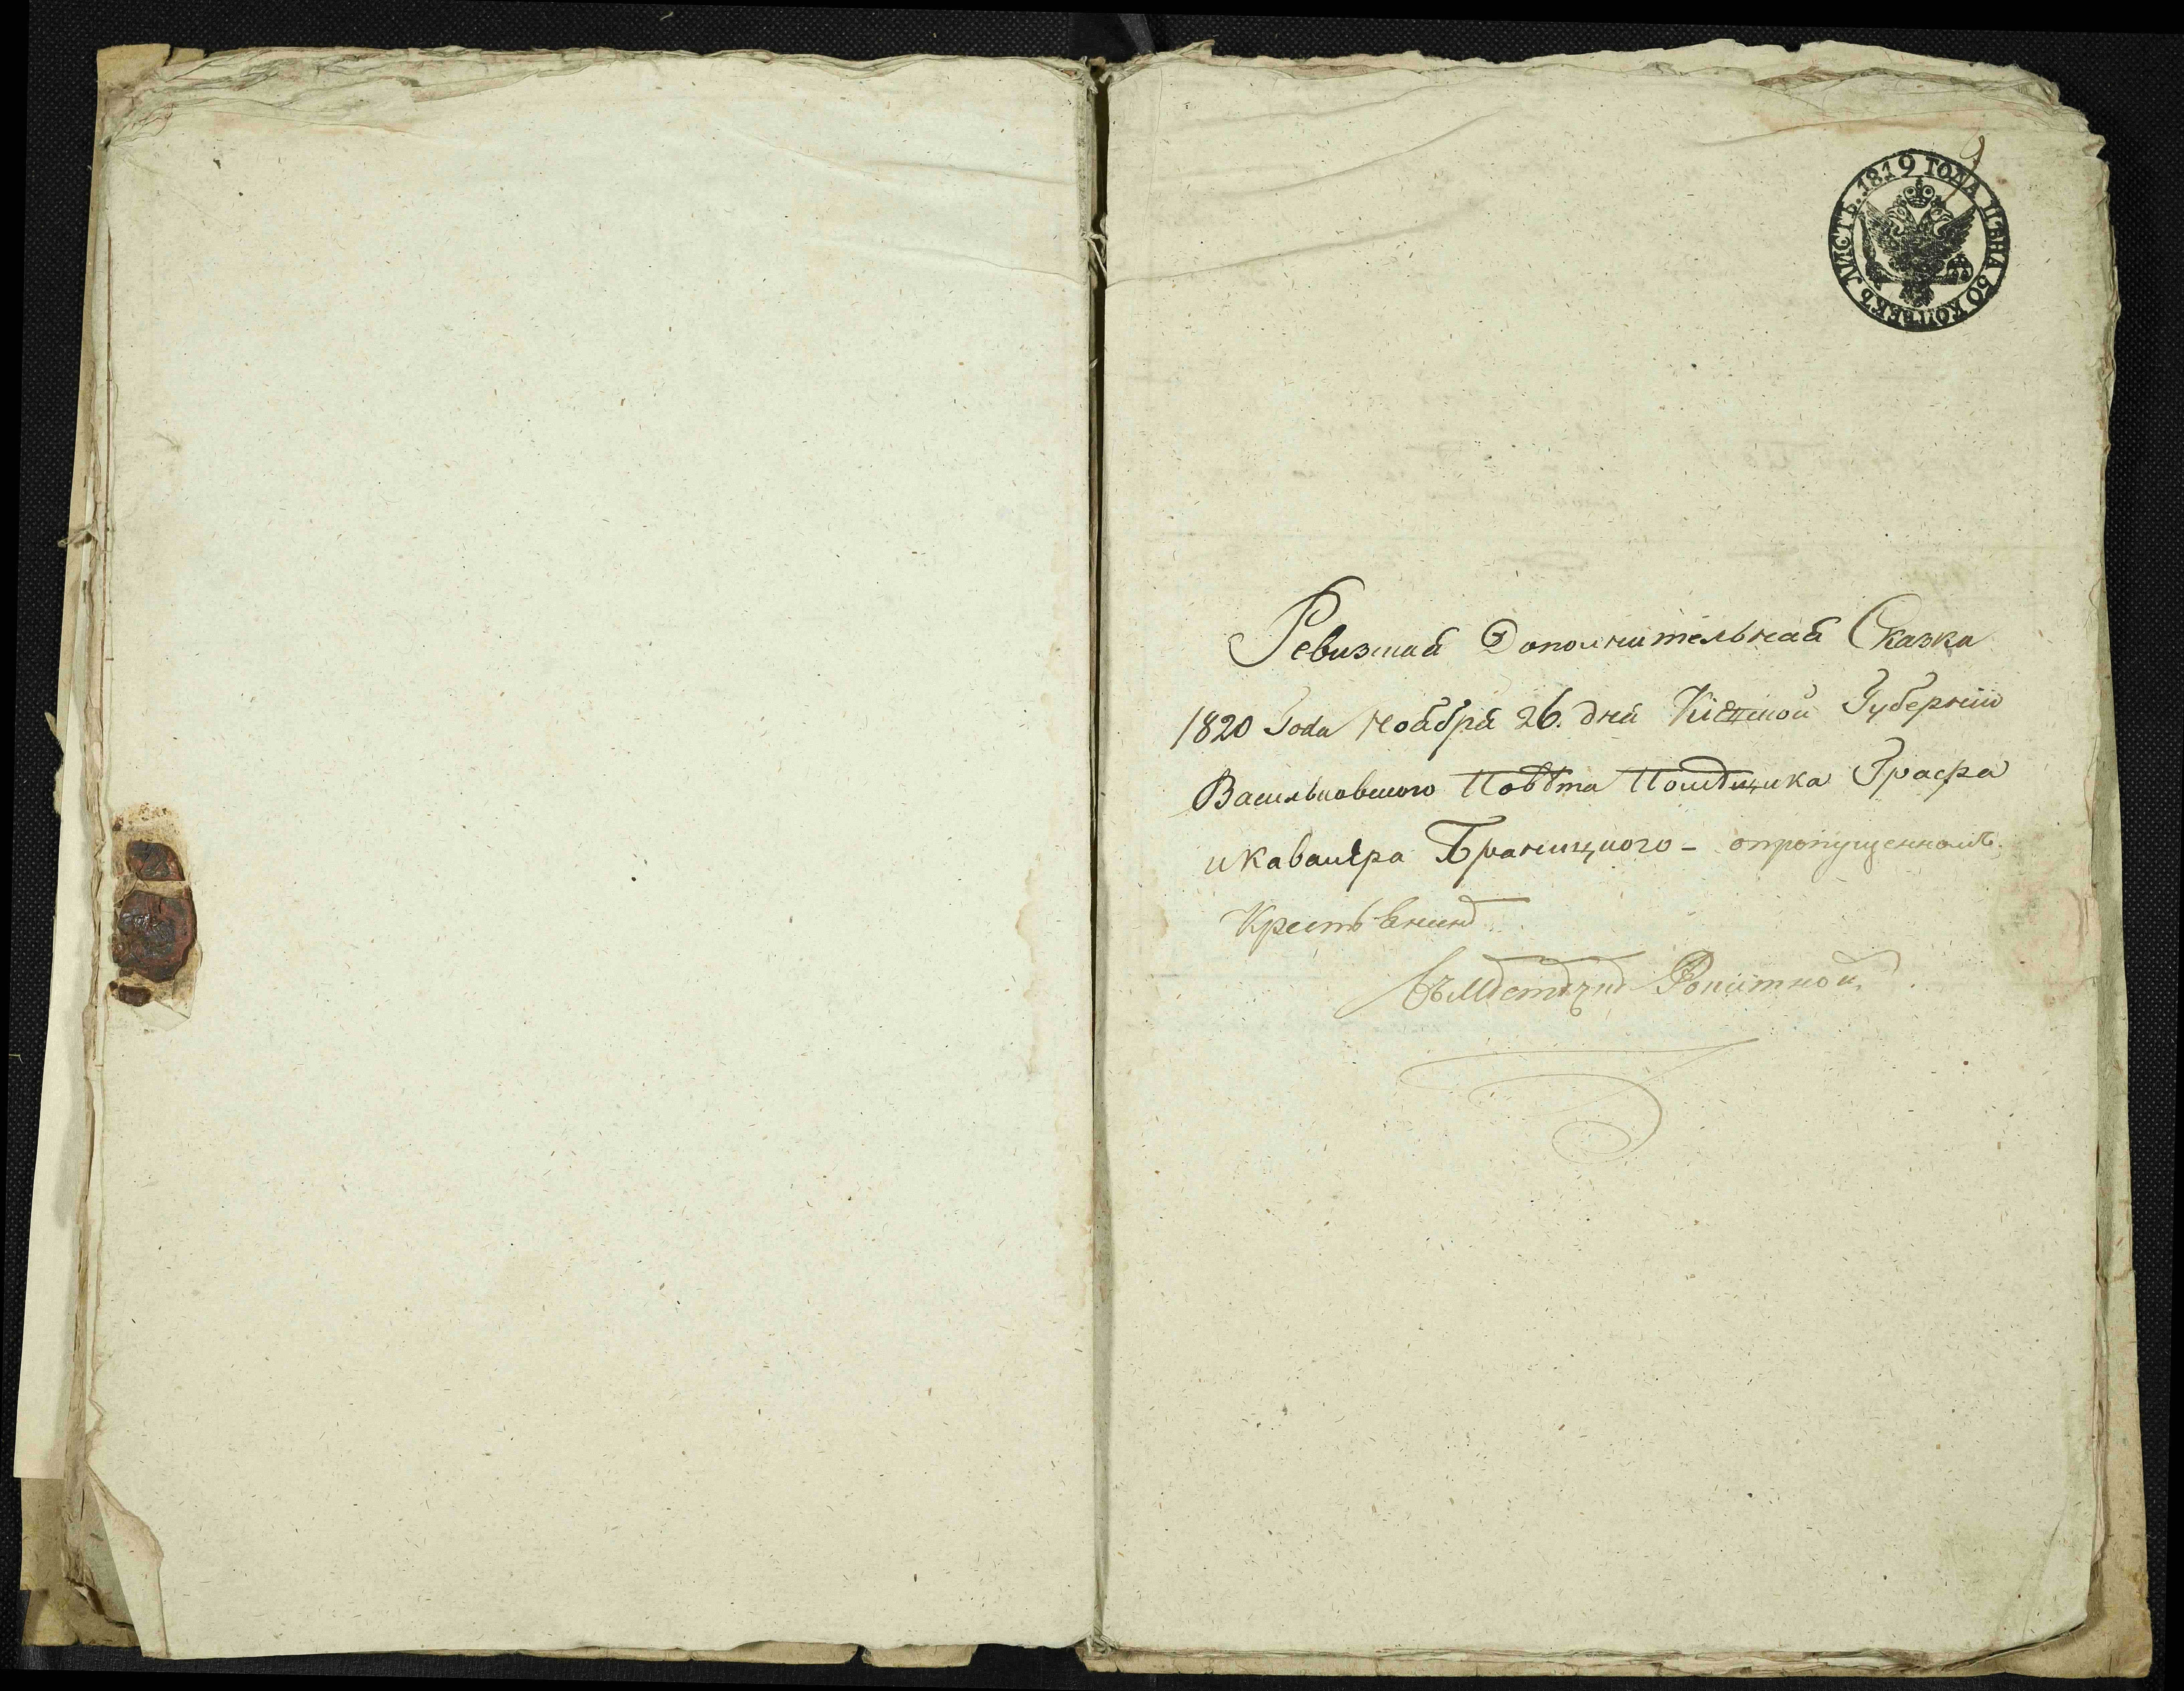 1819 ГОДА ЦѢНА 50 КОПѢЕКЪ ЛИСТЪ.
Ревизкая Дополнительная Сказка
1820 Года Ноября 26. дня Кіевской Губерніи
Васильковского Повѣта Помѣщика Графа
и Кавалера Браницкого - опропущенномъ
Крестьянинѣ
въ Мѣстѣчкѣ Рокитной.